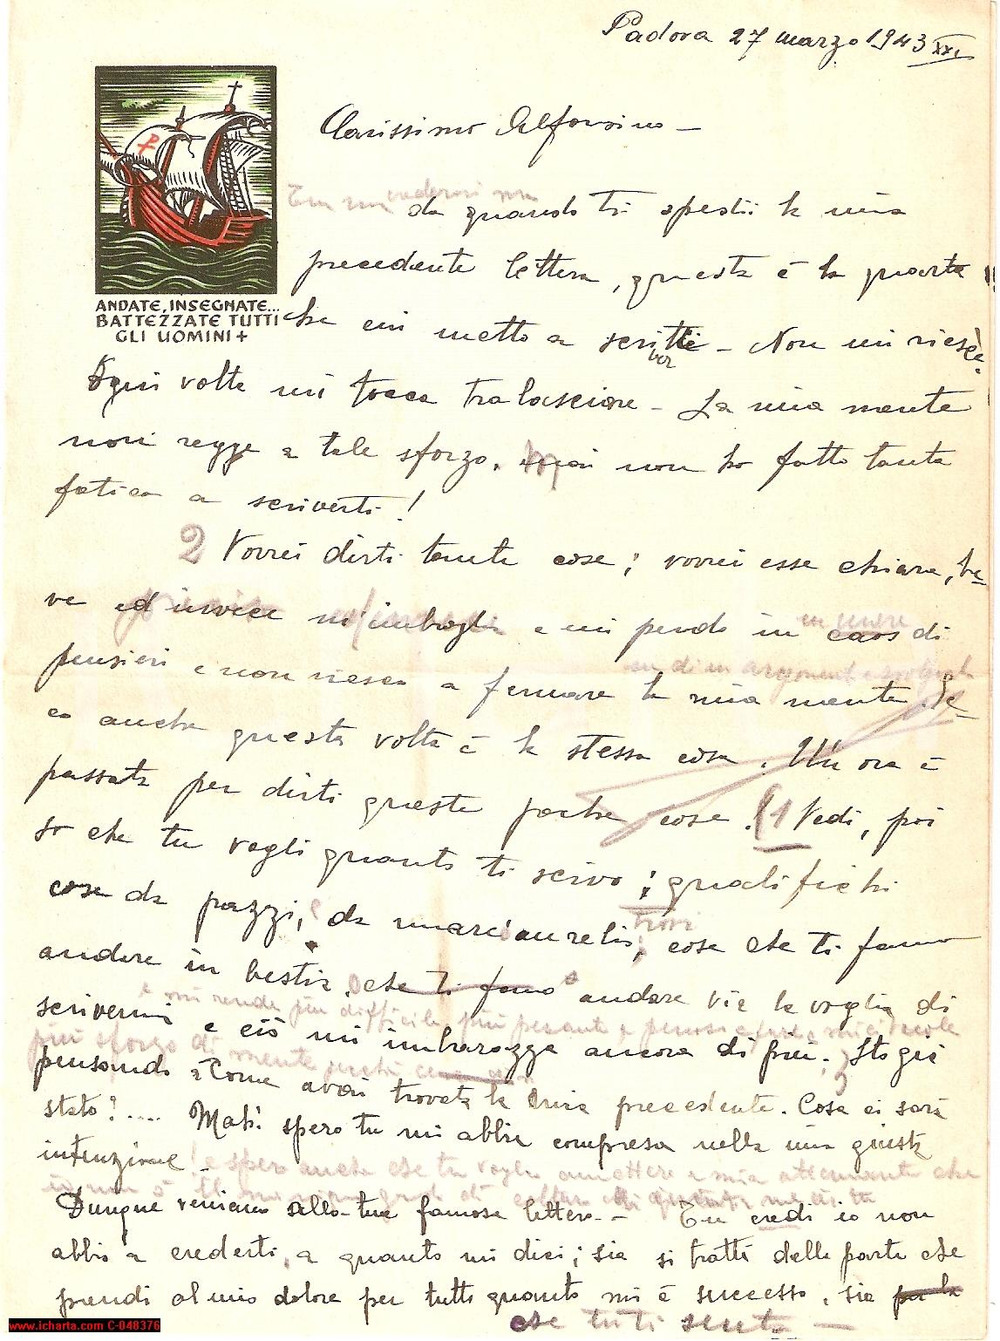 Padova 27 marzo 1943 XXI
Carissimo Alfonsino —
da quando ti spedii la mia
precedente lettera, questa è la quarta
ANDATE, INSEGNATE...
BATTEZZATE TUTTI
GLI UOMINI +
che mi metto a scriver — Non mi riesce.
Ogni volta mi tocca tralasciare — La mia mente
non regge a tale sforzo. mai non ho fatto tanta
fatica a scriverti!
2 Vorrei dirti tante cose; vorrei esse chiara, bre=
ve ed invece m'imbroglio e mi perdo in caos di
pensieri e non riesco a fermare la mia mente. Ec=
co anche questa volta è la stessa cosa. Un ora è
passata per dirti queste poche cose! (1 Vedi, poi
so che tu vagli quanto ti scrivo; qualifichi
cose da pazzi, da marc'aurelio, cose che ti fanno
andare in bestia che ti fano andare via la voglia di
e mi rende più difficile più pesante e
scrivermi e ciò mi imbarazza ancora di più. Sto già
più sforzo di mente
pensando a come avrai trovata la mia precedente. Cosa ci sarà
stato?.... Mah! spero tu mi abbia compresa nella mia giusta
intenzione!
e spero anche che tu voglia ammettere a mia attenuante che
Dunque veniamo alla tua famosa lettera — Tu credi io non
abbia a crederti, a quanto mi dici; sia si tratti della parte che
prendi al mio dolore per tutto quanto mi è successo, sia per la
che tu ti senta —
www.icharta.com C-048376